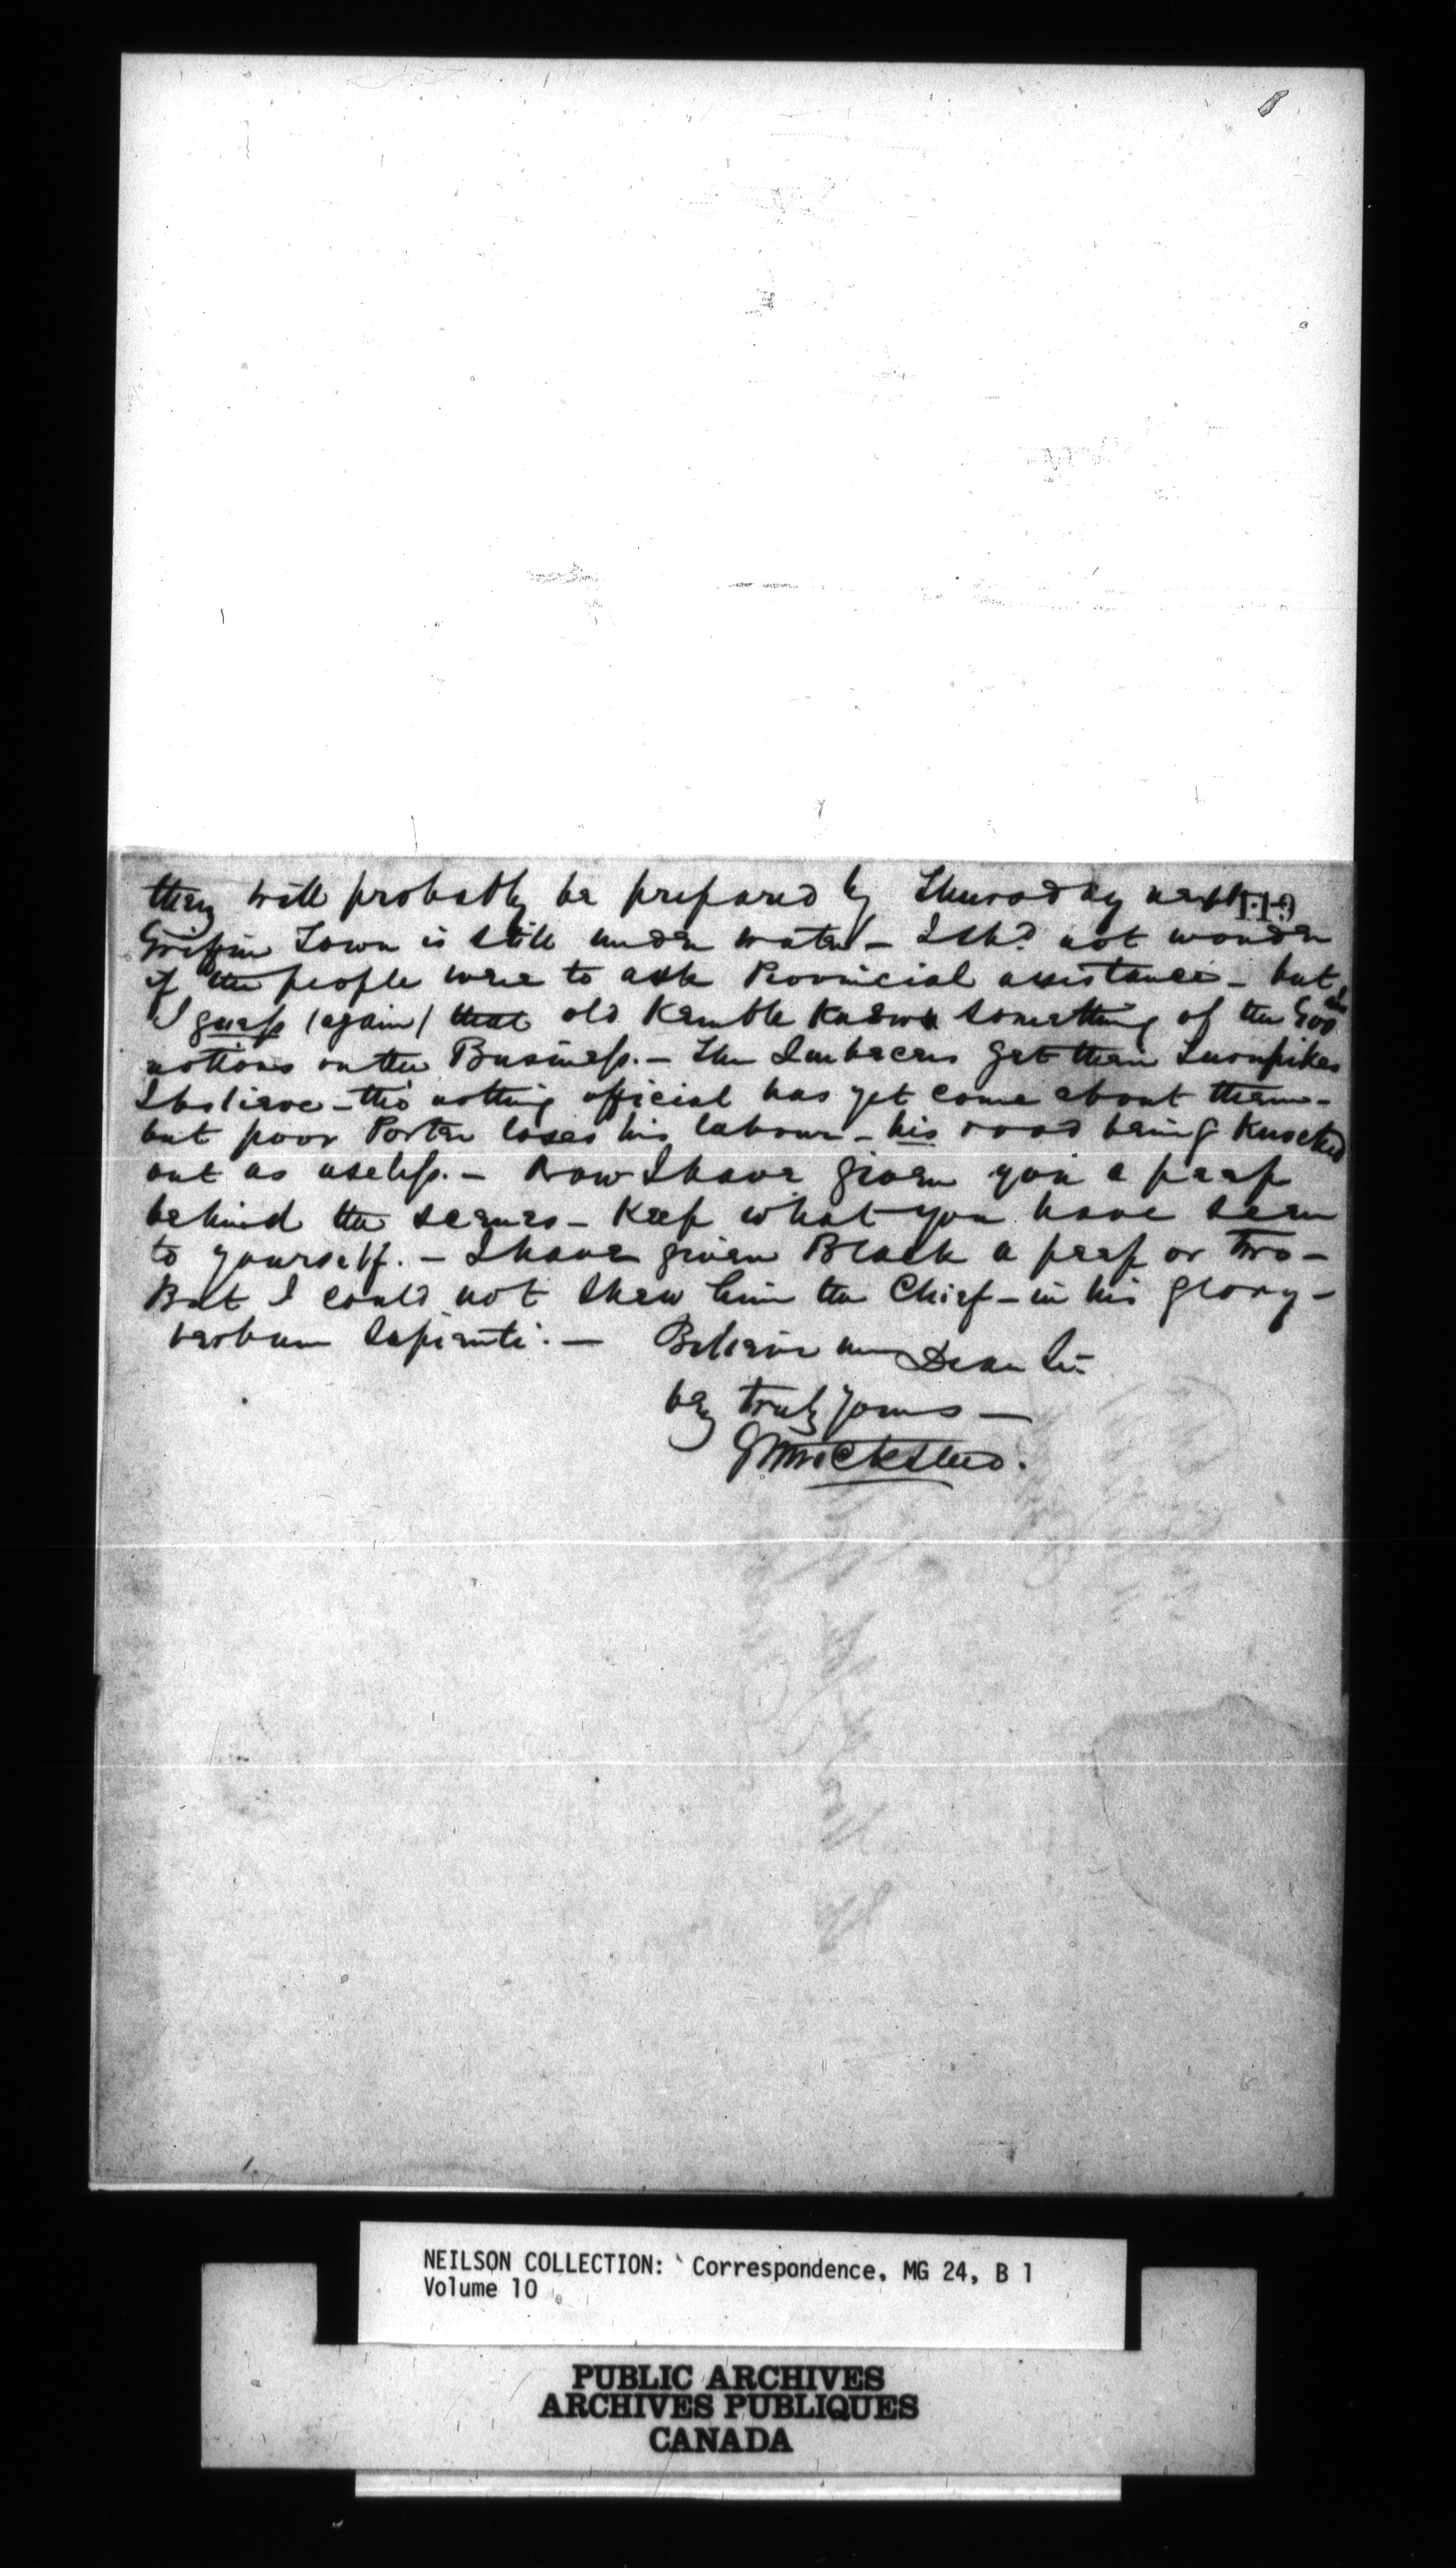 they will probably be prepared by Thursday next 119
Griffin Town is still under water – I shd. not wonder
if the people were to ask Provincial assistance – but
I guess (again) that old Kemble knows something of the Govr's
notions on the Business. – The get their Turnpikes
I believe – tho' nothing official has yet come about them –
but poor Porter loses his labour – his road being knocked
out as useless. – Now I have given you a peep
behind the scenes – Keep what you have seen
to yourself. – I have given Black a peep or two –
But I could not shew him the Chief – in his glory –
verbum sapienti. – Believe me Dear Sir
very truly yours –
GWWicksteed.
NEILSON COLLECTION: Correspondence, MG 24, B 1
Volume 10
PUBLIC ARCHIVES
ARCHIVES PUBLIQUES
CANADA